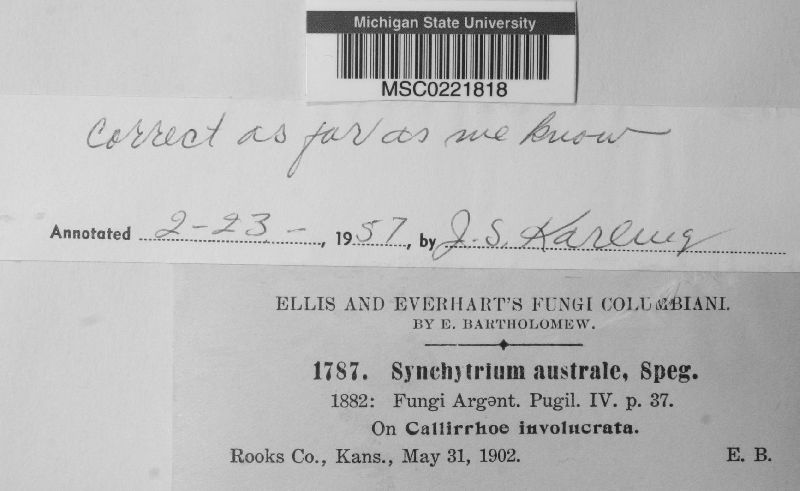 Michigan State University
MSC0221818
correct as far as we know
Annotated 2-23-, 1957, by J. S. Karling
ELLIS AND EVERHART'S FUNGI COLUMBIANI.
BY E. BARTHOLOMEW.
1787. Synchytrium australe, Speg.
1882: Fungi Argent. Pugil. IV. p. 37.
On Callirrhoe involucrata.
Rooks Co., Kans., May 31, 1902. E. B.